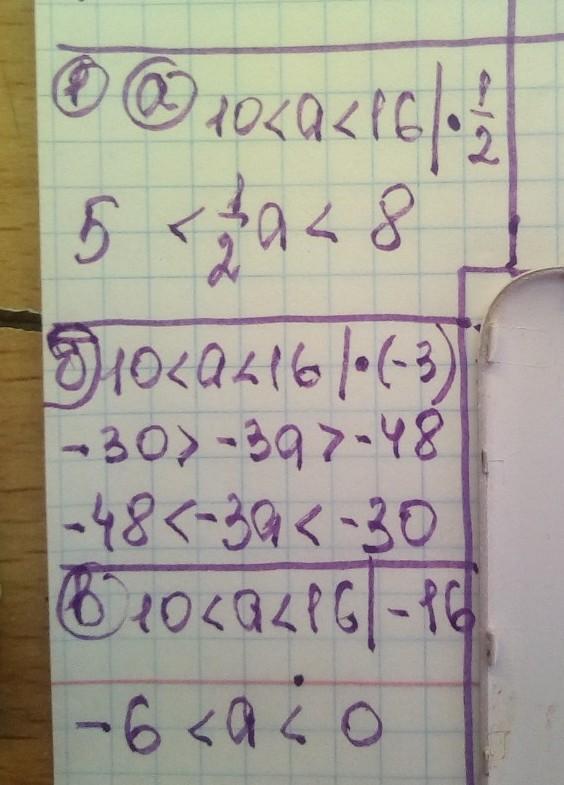 1 а 10<a<16 | · 1/2
5 < 1/2 a < 8
б 10<a<16 | · (-3)
-30 > -3a > -48
-48 < -3a < -30
в 10<a<16 | -16
-6 < a < 0